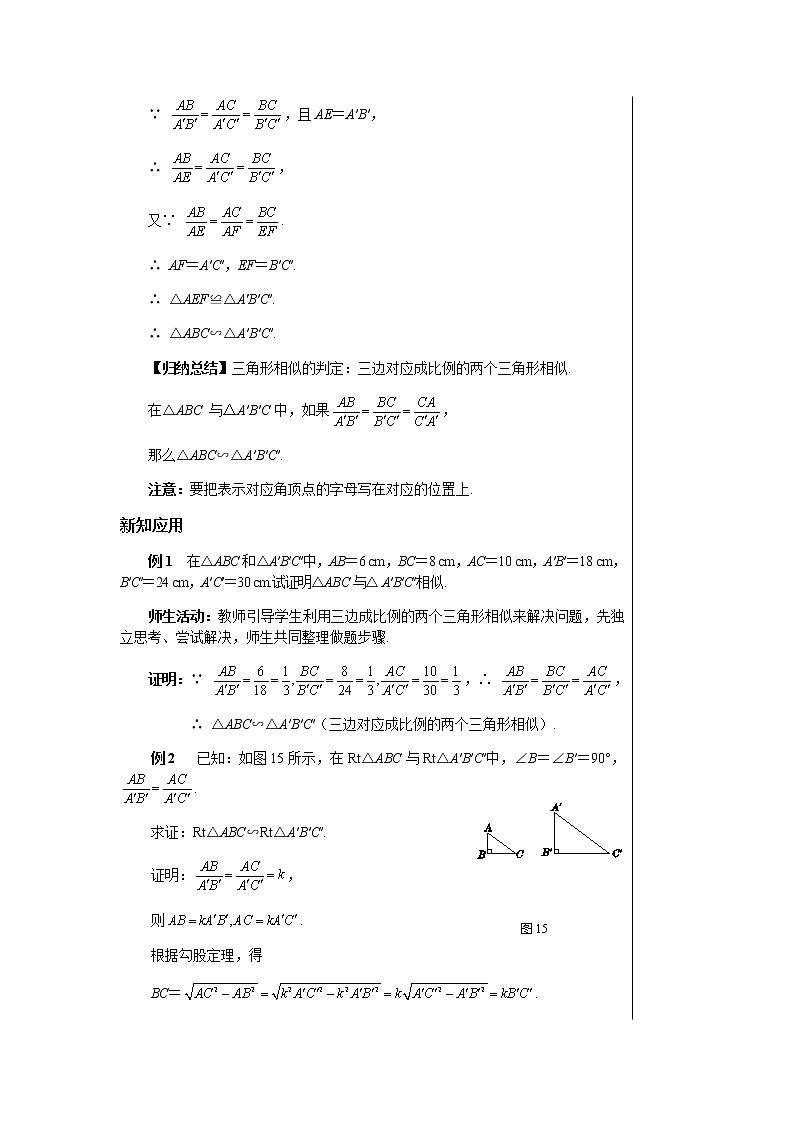 ∵ AB/A′B′=AC/A′C′=BC/B′C′,且AE=A′B′,
∴ AB/AE=AC/A′C′=BC/B′C′,
又∵ AB/AE=AC/AF=BC/EF.
∴ AF=A′C′,EF=B′C′.
∴ △AEF≌△A′B′C′.
∴ △ABC∽△A′B′C′.
【归纳总结】三角形相似的判定:三边对应成比例的两个三角形相似.
在△ABC 与△A′B′C中,如果AB/A′B′=BC/B′C′=CA/C′A′,
那么△ABC∽△A′B′C′.
注意:要把表示对应角顶点的字母写在对应的位置上.
新知应用
例1 在△ABC和△A′B′C′中,AB=6 cm,BC=8 cm,AC=10 cm,A′B′=18 cm,
B′C′=24 cm,A′C′=30 cm.试证明△ABC与△A′B′C′相似.
师生活动:教师引导学生利用三边成比例的两个三角形相似来解决问题,先独
立思考、尝试解决,师生共同整理做题步骤.
证明:∵ AB/A′B′=6/18=1/3,BC/B′C′=8/24=1/3,AC/A′C′=10/30=1/3,∴ AB/A′B′=BC/B′C′=AC/A′C′,
∴ △ABC∽△A′B′C′(三边对应成比例的两个三角形相似).
例2 已知:如图15所示,在Rt△ABC与Rt△A′B′C′中,∠B=∠B′=90°,
AB/A′B′=AC/A′C′.
求证:Rt△ABC∽Rt△A′B′C′.
A
B
C
A′
B′
C′
证明:AB/A′B′=AC/A′C′=k,
则AB=kA′B′,AC=kA′C′.
图15
根据勾股定理,得
BC=√(AC²−AB²)=√(k²A′C′²−k²A′B′²)=k√(A′C′²−A′B′²)=kB′C′.